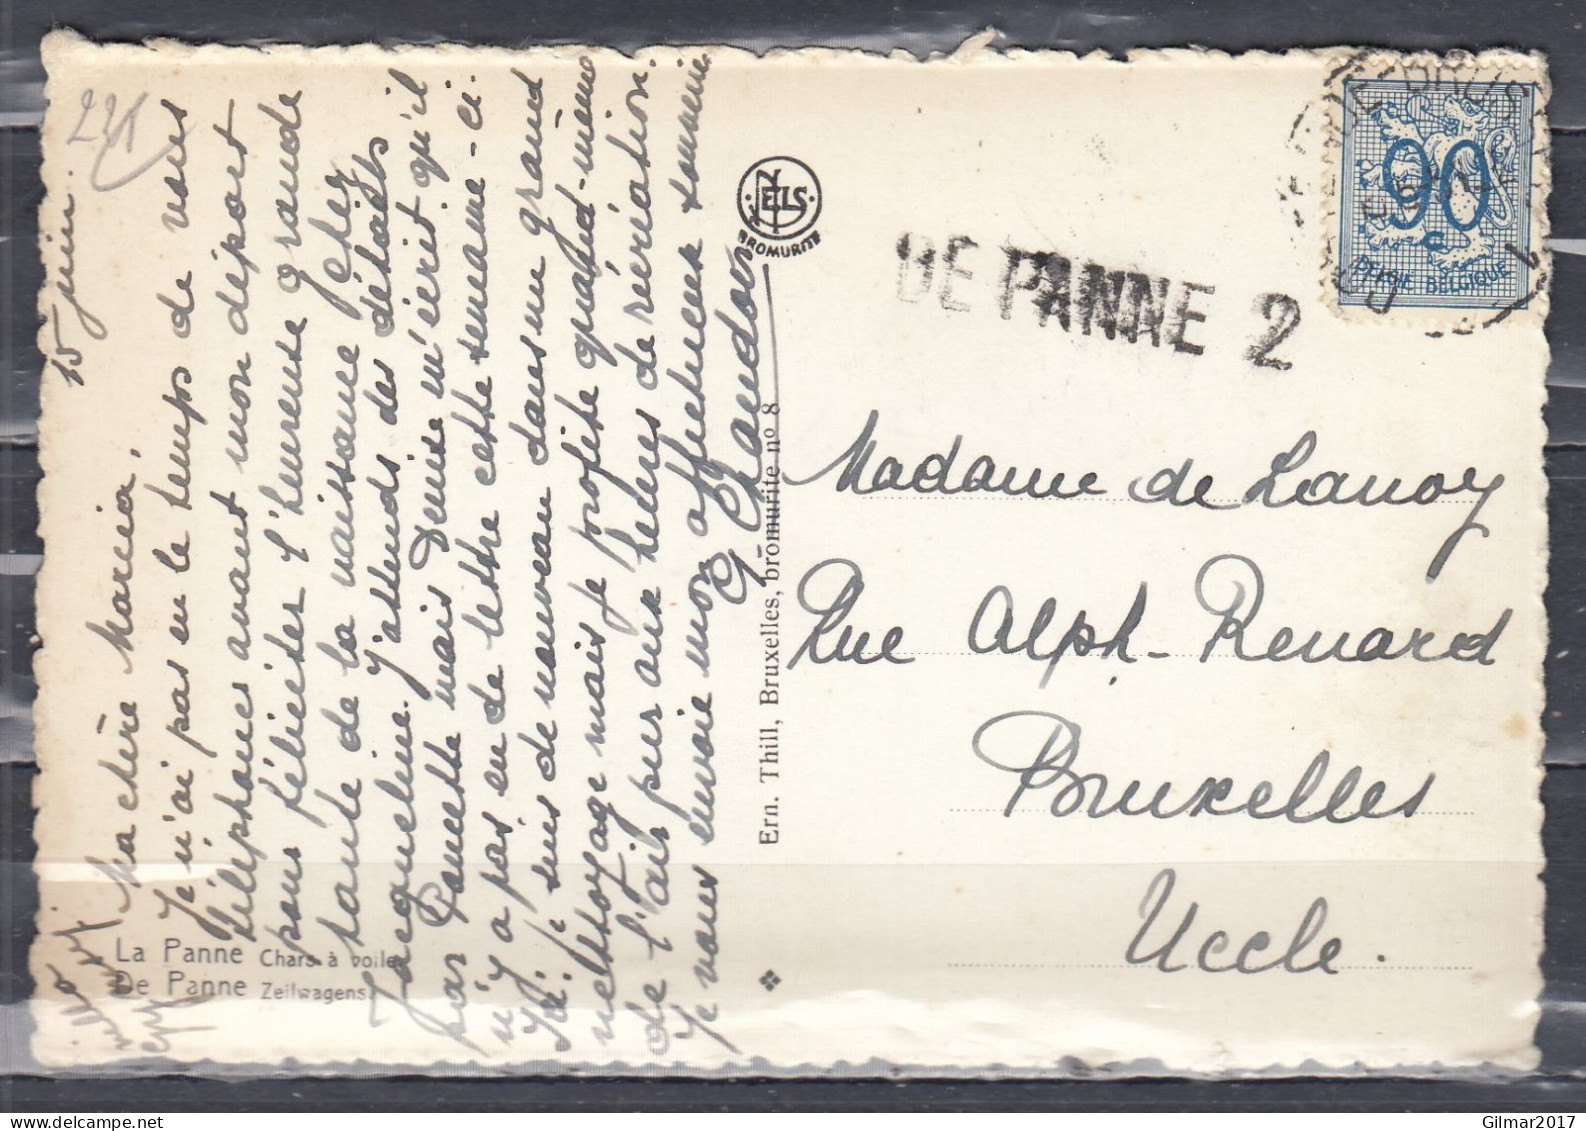 15 juin.
221
Ma chère Marcia,
Je n'ai pas eu le temps de vous
téléphoner avant mon départ
pour féliciter l'heureuse grande
tante de la naissance chez
Jacqueline. J'attends des détails
par Poucette mais Denise m'écrit qu'il
n'y a pas eu de lettre cette semaine-ci
Ici. Je suis de nouveau dans un grand
nettoyage mais je profite quand-même
de l'air pur aux heures de récréation.
Je vous envoie mon affectueux
G. Chaudoir
La Panne Chars à voile
De Panne Zeilwagens
NELS
BROMURITE
Ern. Thill, Bruxelles, bromurite nº 8
DE PANNE 2
90
C
BELGIE BELGIQUE
Madame de Lanoy
Rue Alph-Renard
Bruxelles
Uccle.
Gilmar2017